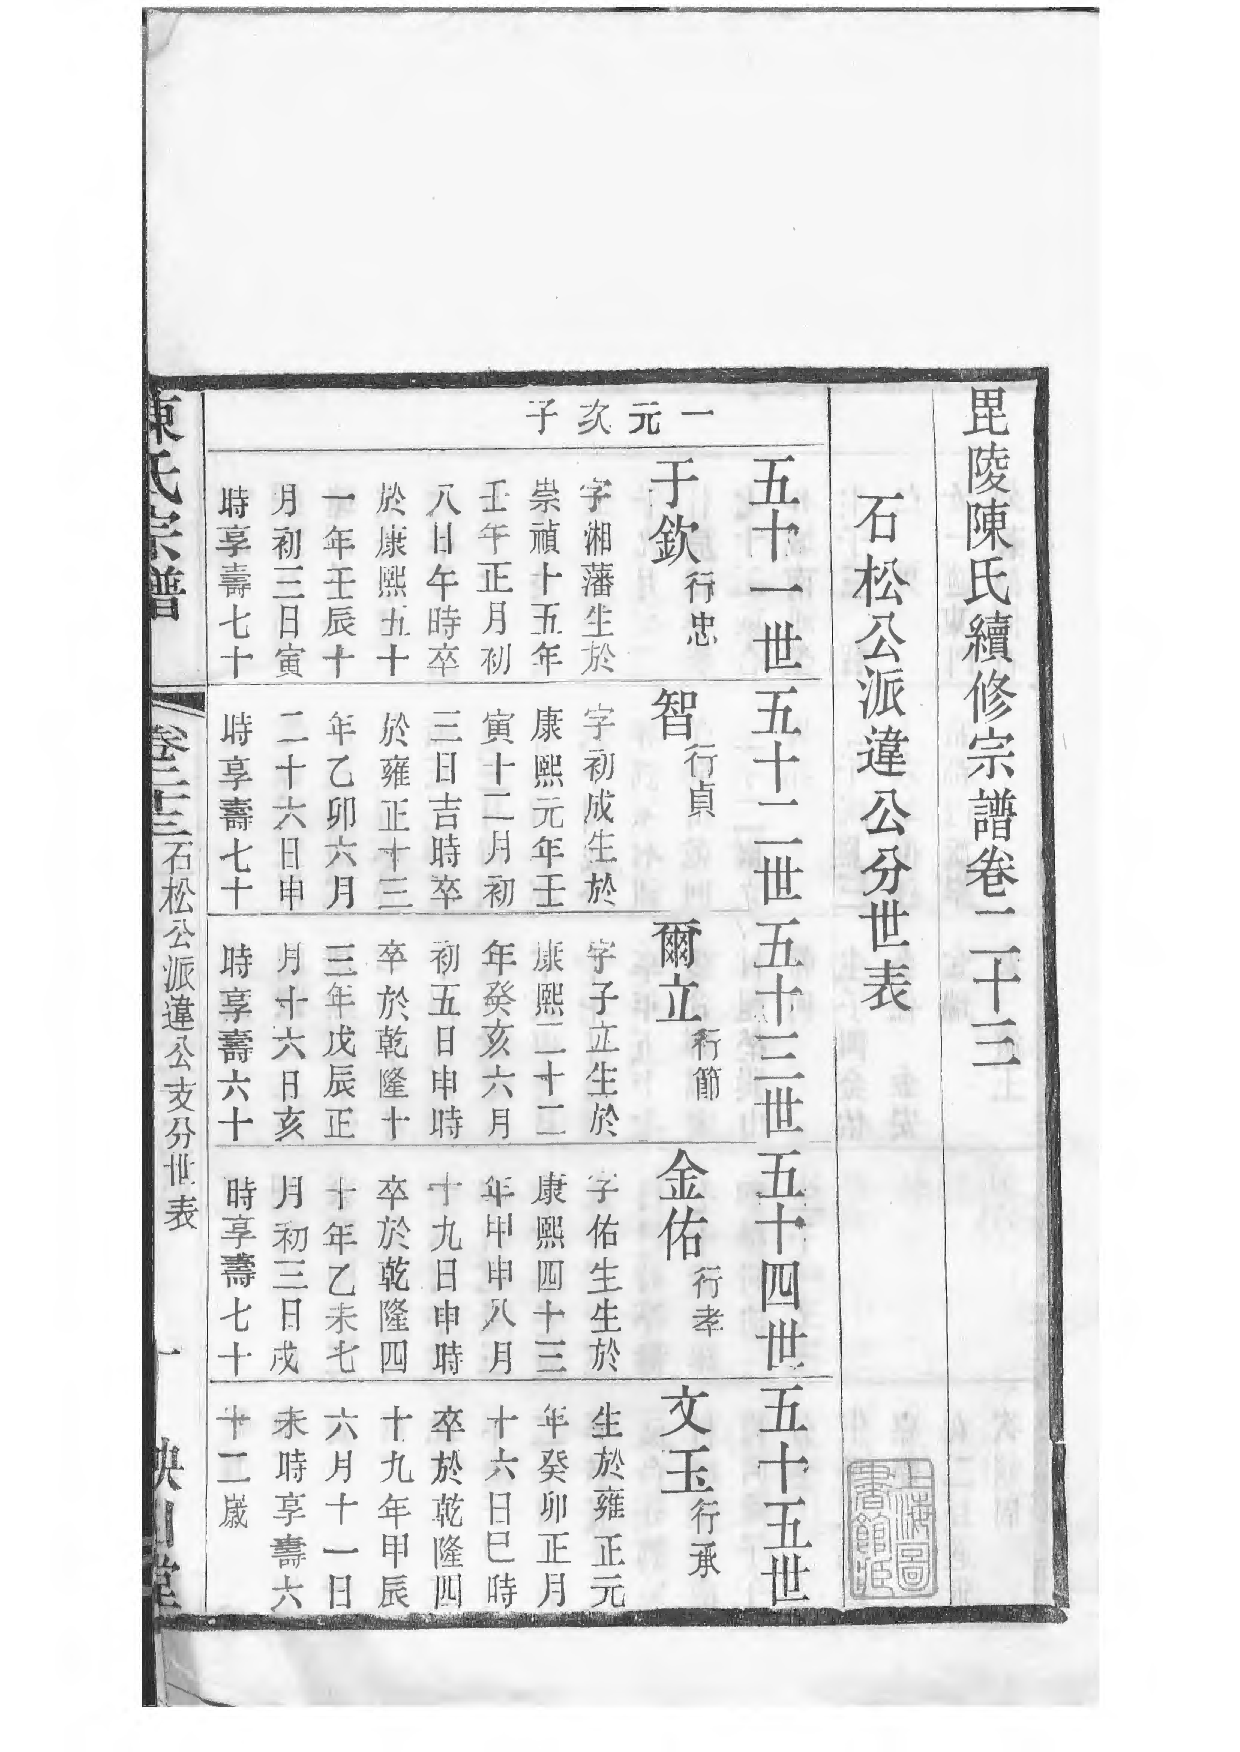 毘陵陳氏續修宗譜卷二十三
石松公派違公分世表
上海圖
書館藏
一元次子
五十一世
于欽行忠
字湘藩生於
崇禎十五年
壬午正月初
八日午時卒
於康熙五十
一年壬辰十
月初三日寅
時享壽七十
五十二世
智行貞
字初成生於
康熙元年壬
寅十二月初
三日吉時卒
於雍正十三
年乙卯六月
二十六日申
時享壽七十
五十三世
爾立行節
字子立生於
康熙二十二
年癸亥六月
初五日申時
卒於乾隆十
三年戊辰正
月十六日亥
時享壽六十
五十四世
金佑行孝
字佑生生於
康熙四十三
年甲申八月
十九日申時
卒於乾隆四
十年乙未七
月初三日戌
時享壽七十
五十五世
文玉行承
生於雍正元
年癸卯正月
十六日巳時
卒於乾隆四
十九年甲辰
六月十一日
未時享壽六
十二歲
陳氏宗譜
卷二十三
石松公派違公支分世表
一
映月堂